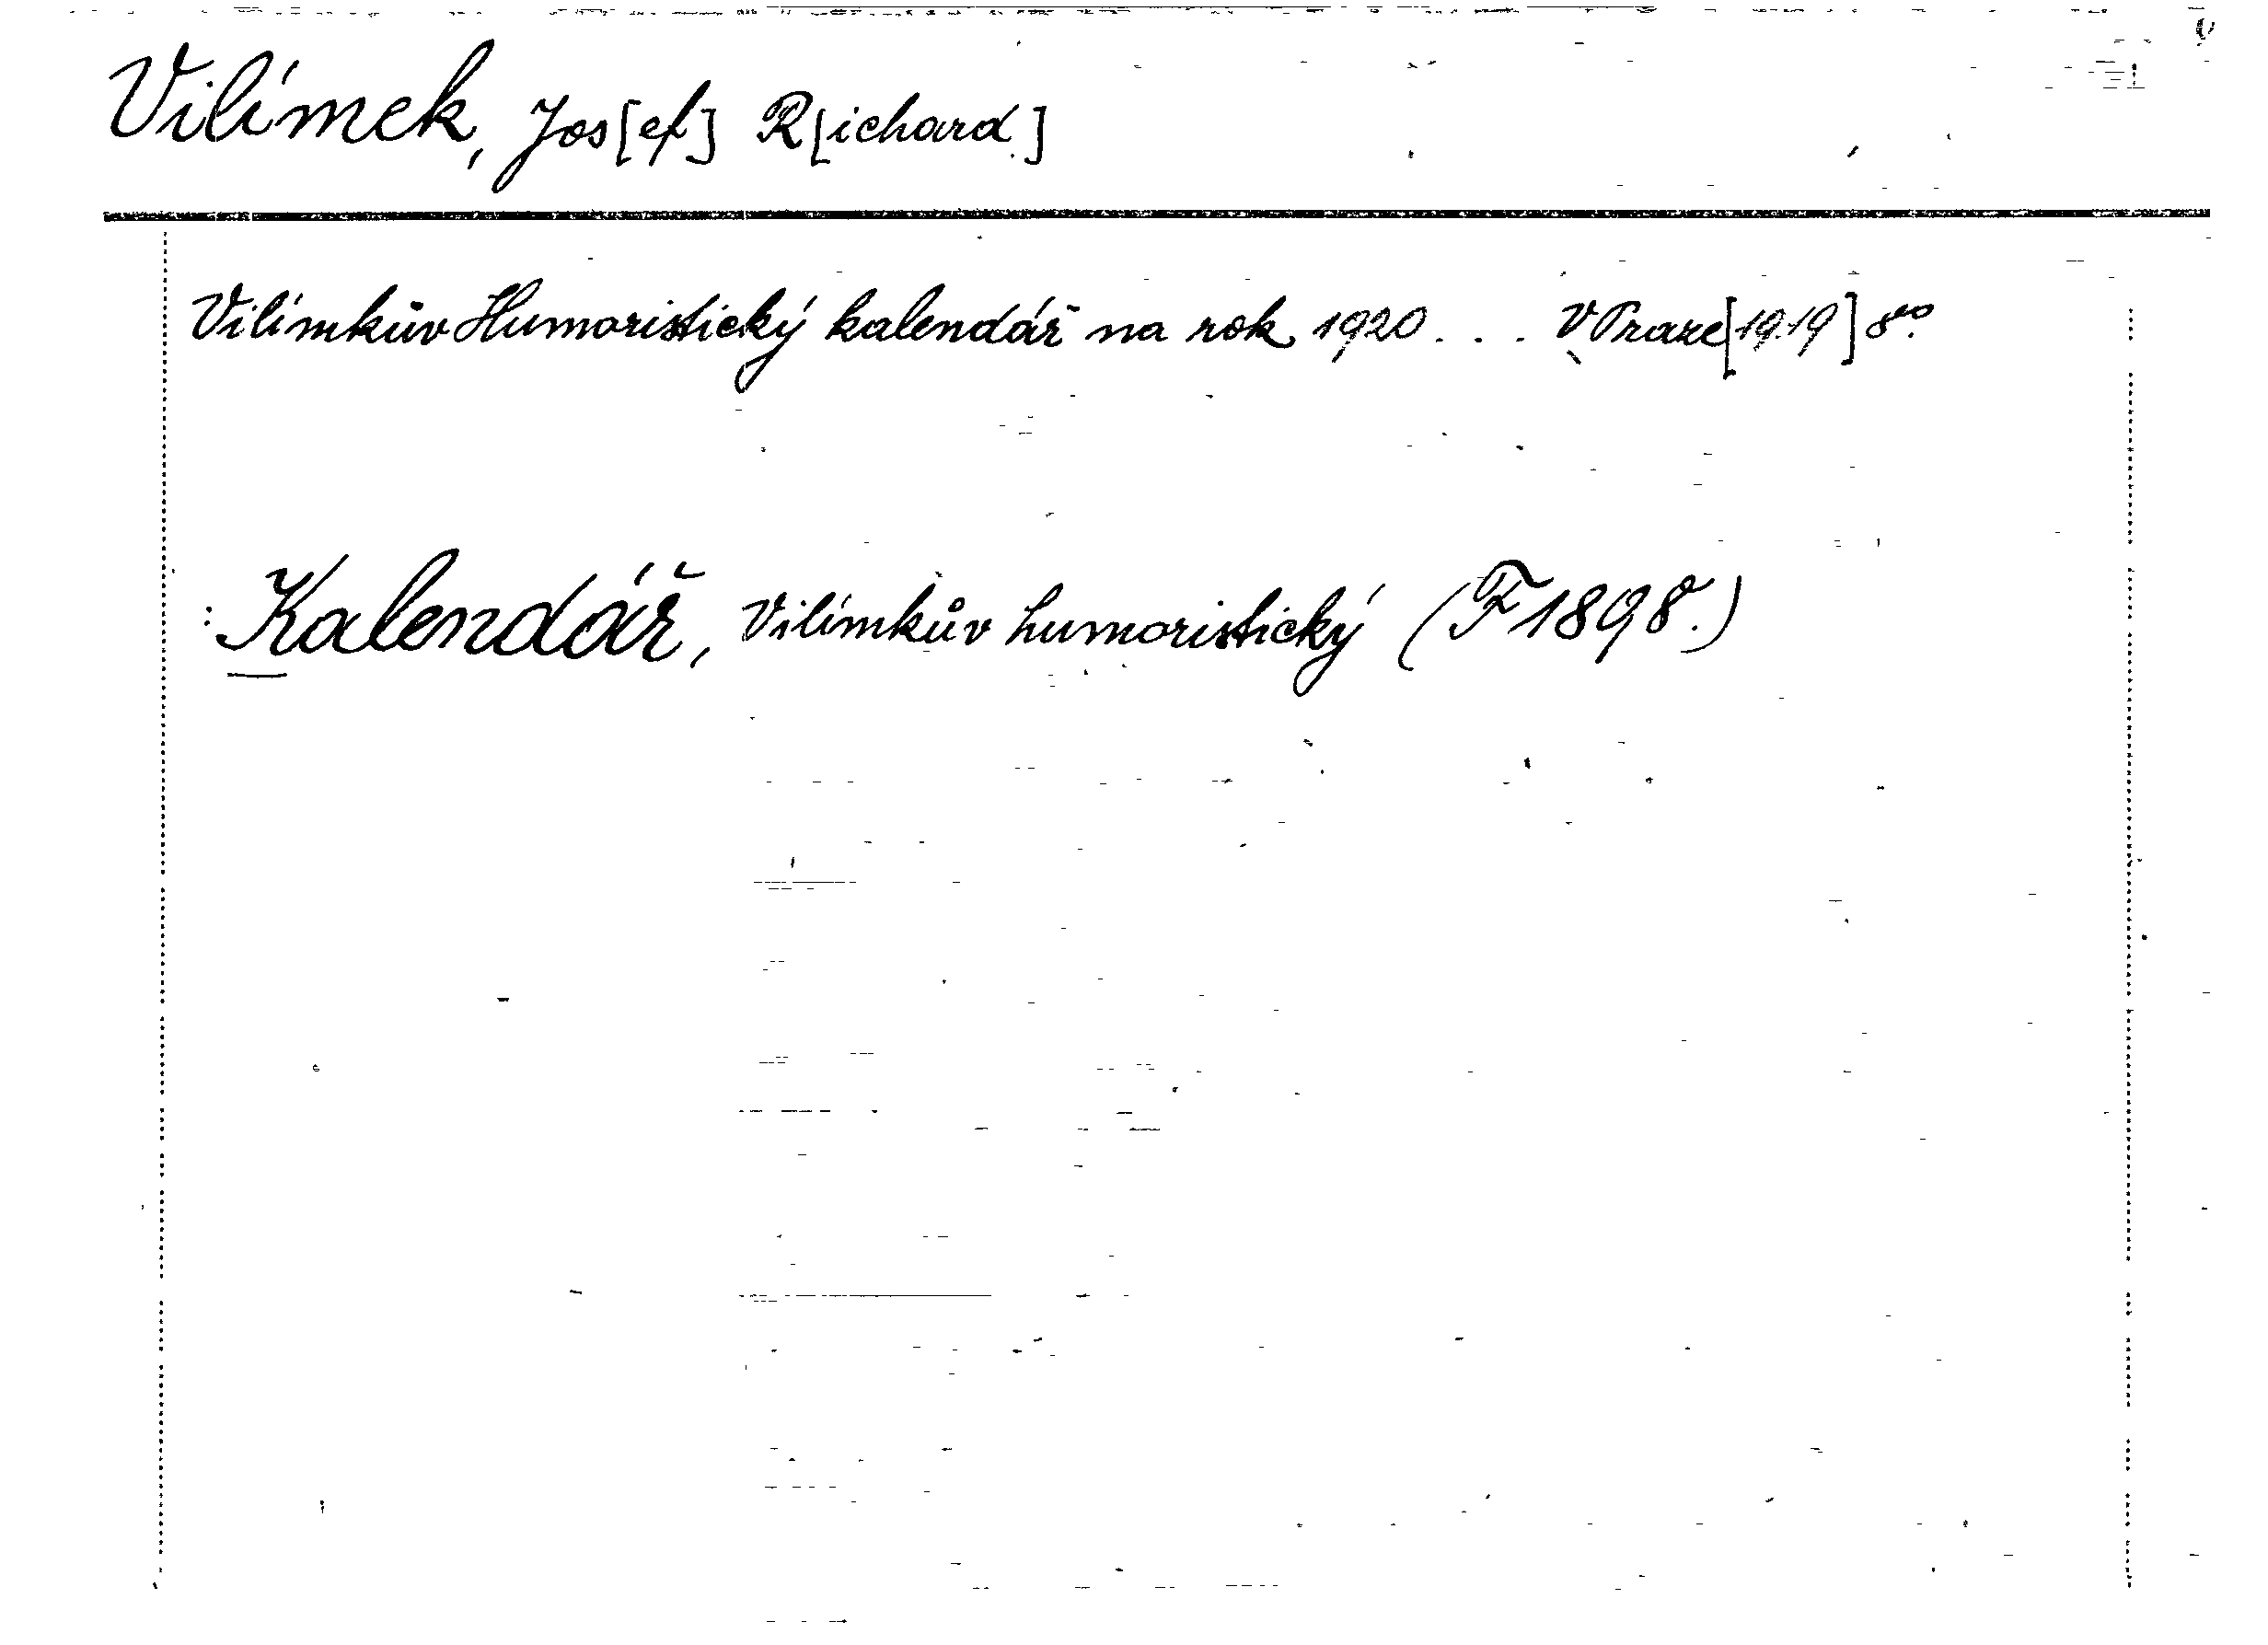 Vilímek, Jos[ef] R[ichard]
Vilímkův Humoristický kalendář na rok 1920... V Praze [1919] 8°.
: Kalendář, Vilímkův humoristický (F 1898.)